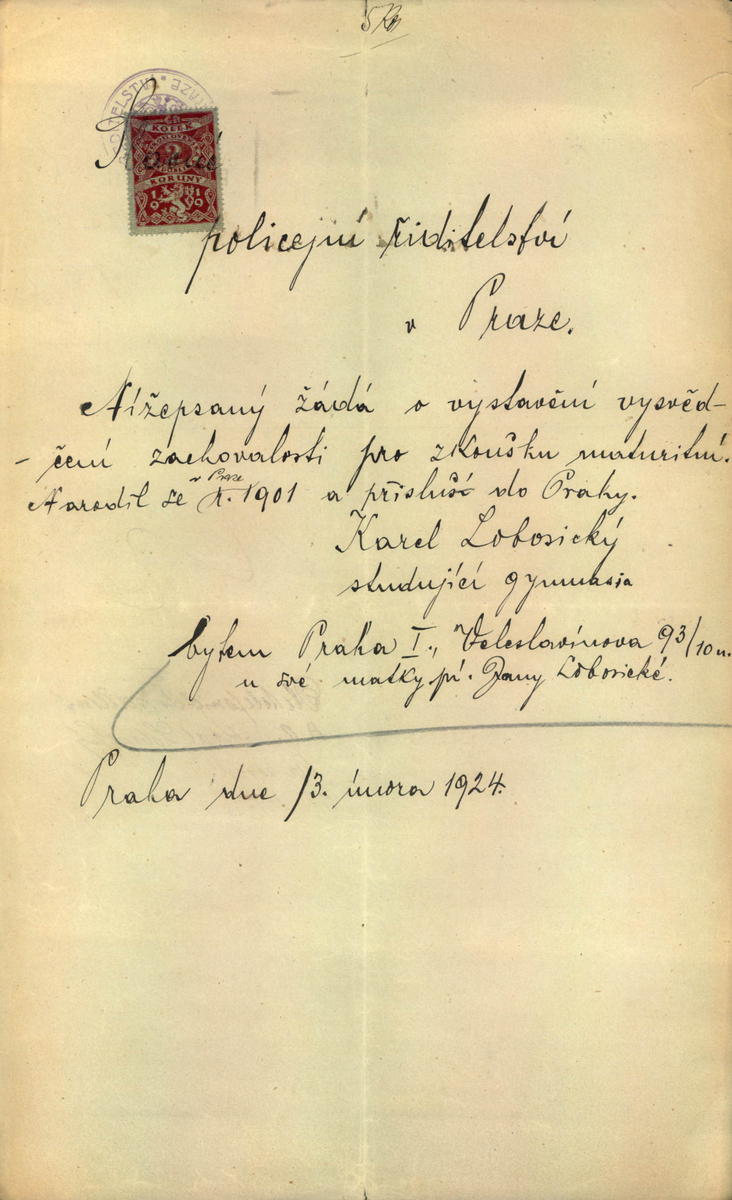 5 Kč
Slavné
KOLEK
2
KORUNY
1919
policejní ředitelství
v Praze.
Nížepsaný žádá o vystavění vysvěd-
-čení zachovalosti pro zkoušku maturitní.
v Praze
Narodil se r. 1901 a přísluší do Prahy.
Karel Lobosický
studující gymnasia
bytem Praha I., Veleslavínova 93/10n.
u své matky pí. Jany Lobosické.
Praha dne 13. února 1924.